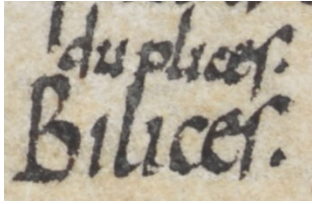 duplices.
Bilices.